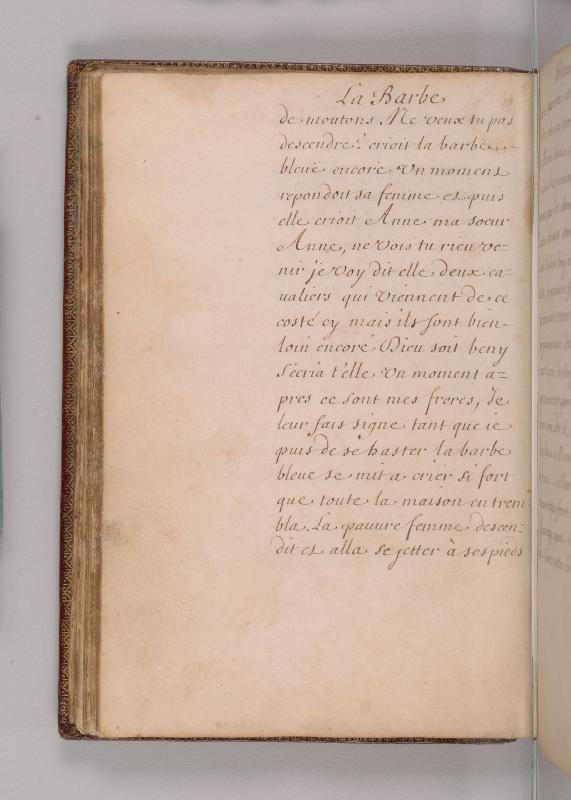 La Barbe
de moutons Ne veux tu pas
descendre? crioit la barbe
bleuë encore Un moment
repondoit sa femme et puis
elle crioit Anne ma soeur
Anne, ne vois tu rien ve=
nir je voy dit elle deux ca=
ualiers qui viennent de ce
costé cy mais ils sont bien
loin encore Dieu soit beny
s'écria t'elle Un moment a=
pres ce sont mes freres, Je
leur fais signe tant que ie
puis de se haster la barbe
bleue se mit a crier si fort
que toute la maison en trem=
bla. La pauure femme descen=
dit et alla se jetter à ses pieds